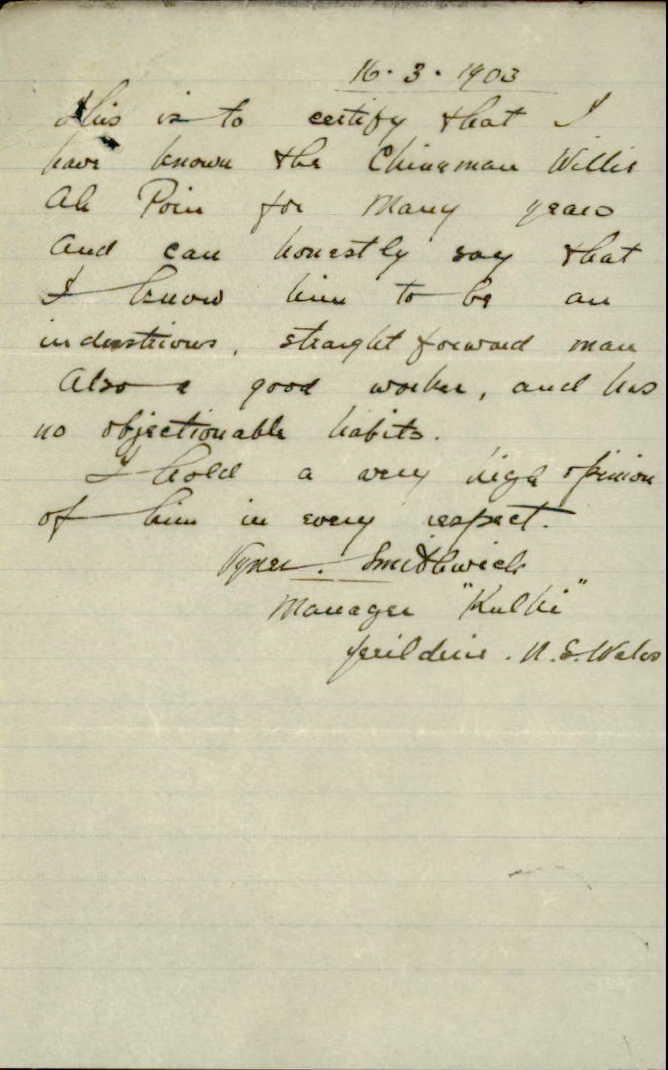 16.3.1903
This is to certify that I
have known the Chinaman Willie
Ah Poin for Many years
And can honestly say that
I know him to be an
industrious, straight forward man
Also a good worker, and has
no objectionable habits.
I hold a very high opinion
of him in every respect.
Vyner. Smithwick
Manager "Kulki"
Jerilderie. N.S.Wales